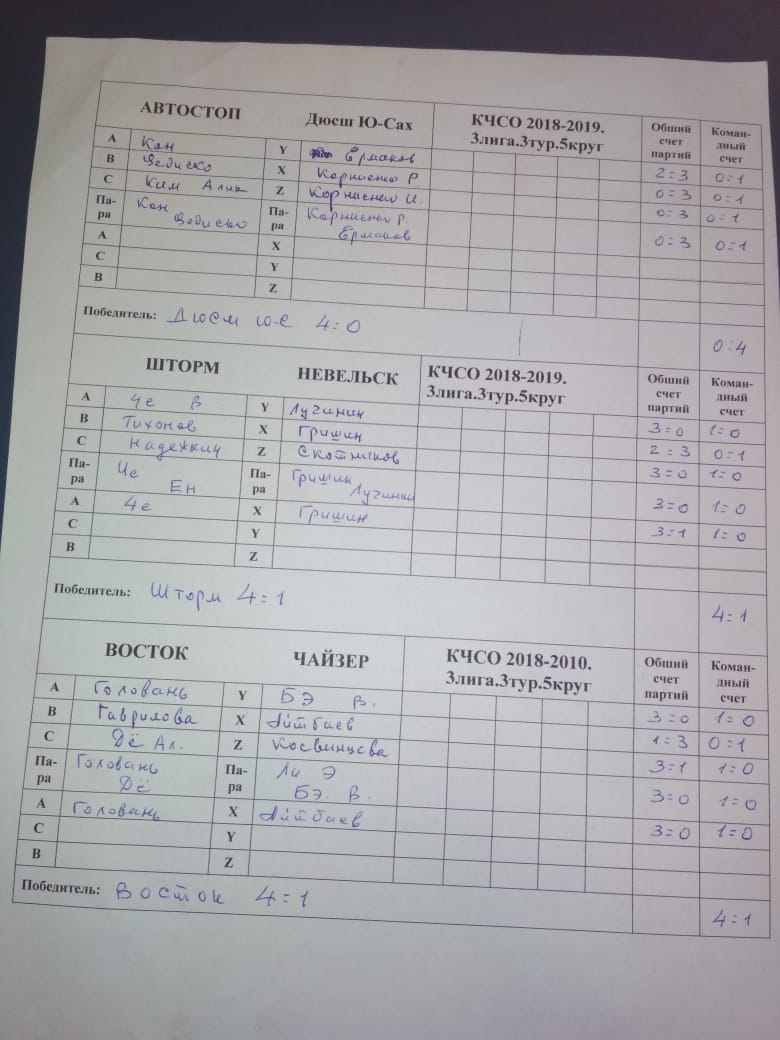 АВТОСТОП Дюсш Ю-Сах КЧСО 2018-2019. 3лига.3тур.5круг Общий счет партий Коман-дный счет
A Кан Y Ермаков 2=3 0=1
B Цедиско X Корниенко Р. 0=3 0=1
C Ким Алина Z Корниенко И. 0=3 0=1
Па-ра Кан Цедиско Па-ра Корниенко Р. Ермаков 0=3 0=1
A X
C Y
B Z
Победитель: Дюсш Ю-С 4:0 0:4
ШТОРМ НЕВЕЛЬСК КЧСО 2018-2019. 3лига.3тур.5круг Общий счет партий Коман-дный счет
A Че В. Y Лучинин 3=0 1=0
B Тихонов X Гришин 2=3 0=1
C Надежкин Z Скотников 3=0 1=0
Па-ра Че Ен Па-ра Гришин Лучинин 3=0 1=0
A Че X Гришин 3=1 1=0
C Y
B Z
Победитель: Шторм 4=1 4=1
ВОСТОК ЧАЙЗЕР КЧСО 2018-2010. 3лига.3тур.5круг Общий счет партий Коман-дный счет
A Головань Y Бэ В. 3=0 1=0
B Гаврилова X Айтбаев 1=3 0=1
C Дё Ал. Z Косвинцева 3=1 1=0
Па-ра Головань Дё Па-ра Ли Э Бэ. В. 3=0 1=0
A Головань X Айтбаев 3=0 1=0
C Y
B Z
Победитель: Восток 4=1 4=1